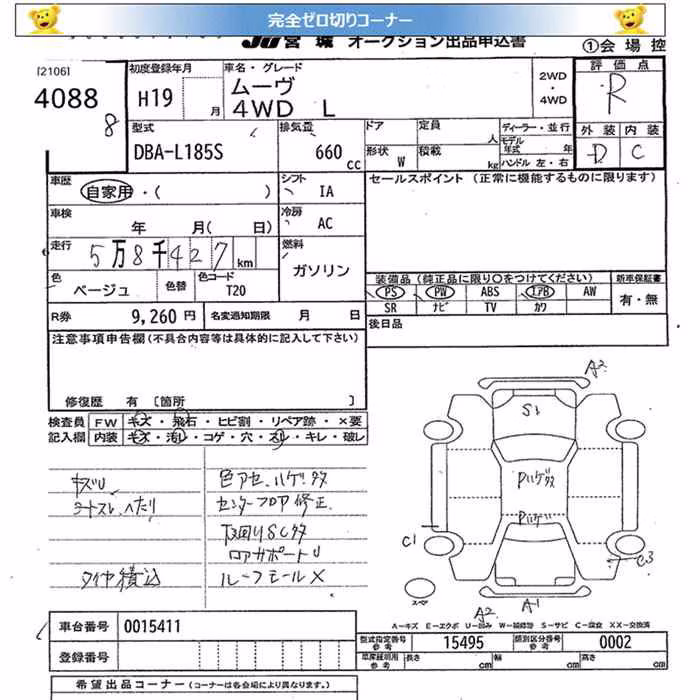 完全ゼロ切りコーナー
JU 宮城 オークション出品申込書
①会場控
[2106]
4088
8
初度登録年月
H19 月
車名・グレード
ムーヴ
4WD L
2WD
・
4WD
評価点
R
外装 内装
D C
型式
DBA-L185S
排気量
660 cc
ドア
定員 人
形状 W
積載 kg
ディーラー・並行
モデル年式 年
ハンドル 左・右
車歴
自家用・( )
シフト
IA
セールスポイント (正常に機能するものに限ります)
車検
年 月( 日)
冷房
AC
走行
5万8千427km
燃料
ガソリン
色
ベージュ
色替
色コード
T20
装備品 (純正品に限り○をつけてください)
PS PW ABS エアB AW
SR ナビ TV カワ
新車保証書
有・無
R券 9,260円
名変通知期限 月 日
後日品
注意事項申告欄(不具合内容等は具体的に記入して下さい)
修復歴 有 [箇所 ]
検査員 FW キズ・飛石・ヒビ割・リペア跡・×要
記入欄 内装 キズ・汚レ・コゲ・穴・スレ・キレ・破レ
キズU
シートスレ、ヘたり
タイヤ積込
色アセ、ハゲ、タタ
センターフロア修正
下回りSC多
ロアサポートU
ルーフモールX
A2
S1
Pハゲ多
Pハゲ
C1
C3
スペア
A2 A1
A−キズ E−エクボ U−凹み W−補修跡 S−サビ C−腐食 XX−交換済
車台番号 0015411
型式指定番号 参考 15495
類別区分番号 参考 0002
登録番号
車庫証明用 参考 長さ cm 幅 cm 高さ cm
希望出品コーナー (コーナーは各会場により異なります。)